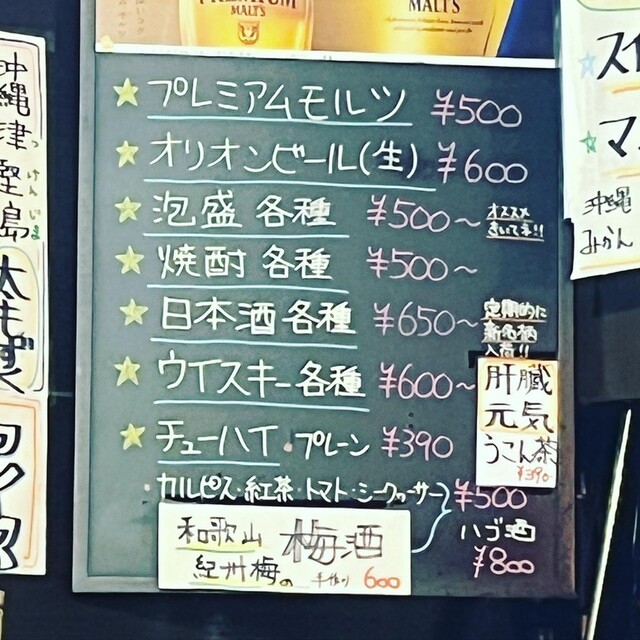 PREMIUM
MALT'S
MALT'S
プレミアムモルツ ¥500
オリオンビール(生) ¥600
泡盛 各種 ¥500~ オススメ
きいて下さい!!
焼酎 各種 ¥500~
日本酒各種 ¥650~ 定期的に
新銘柄
入荷!!
ウイスキー各種 ¥600~
チューハイ プレーン ¥390
カルピス・紅茶・トマト・シークヮーサー ¥500
ハブ酒
¥800
肝臓
元気
うこん茶
¥390
和歌山
紀州梅の
梅酒
手作り 600
沖縄津堅島
つけんじま
太もずく
沖縄
みかん